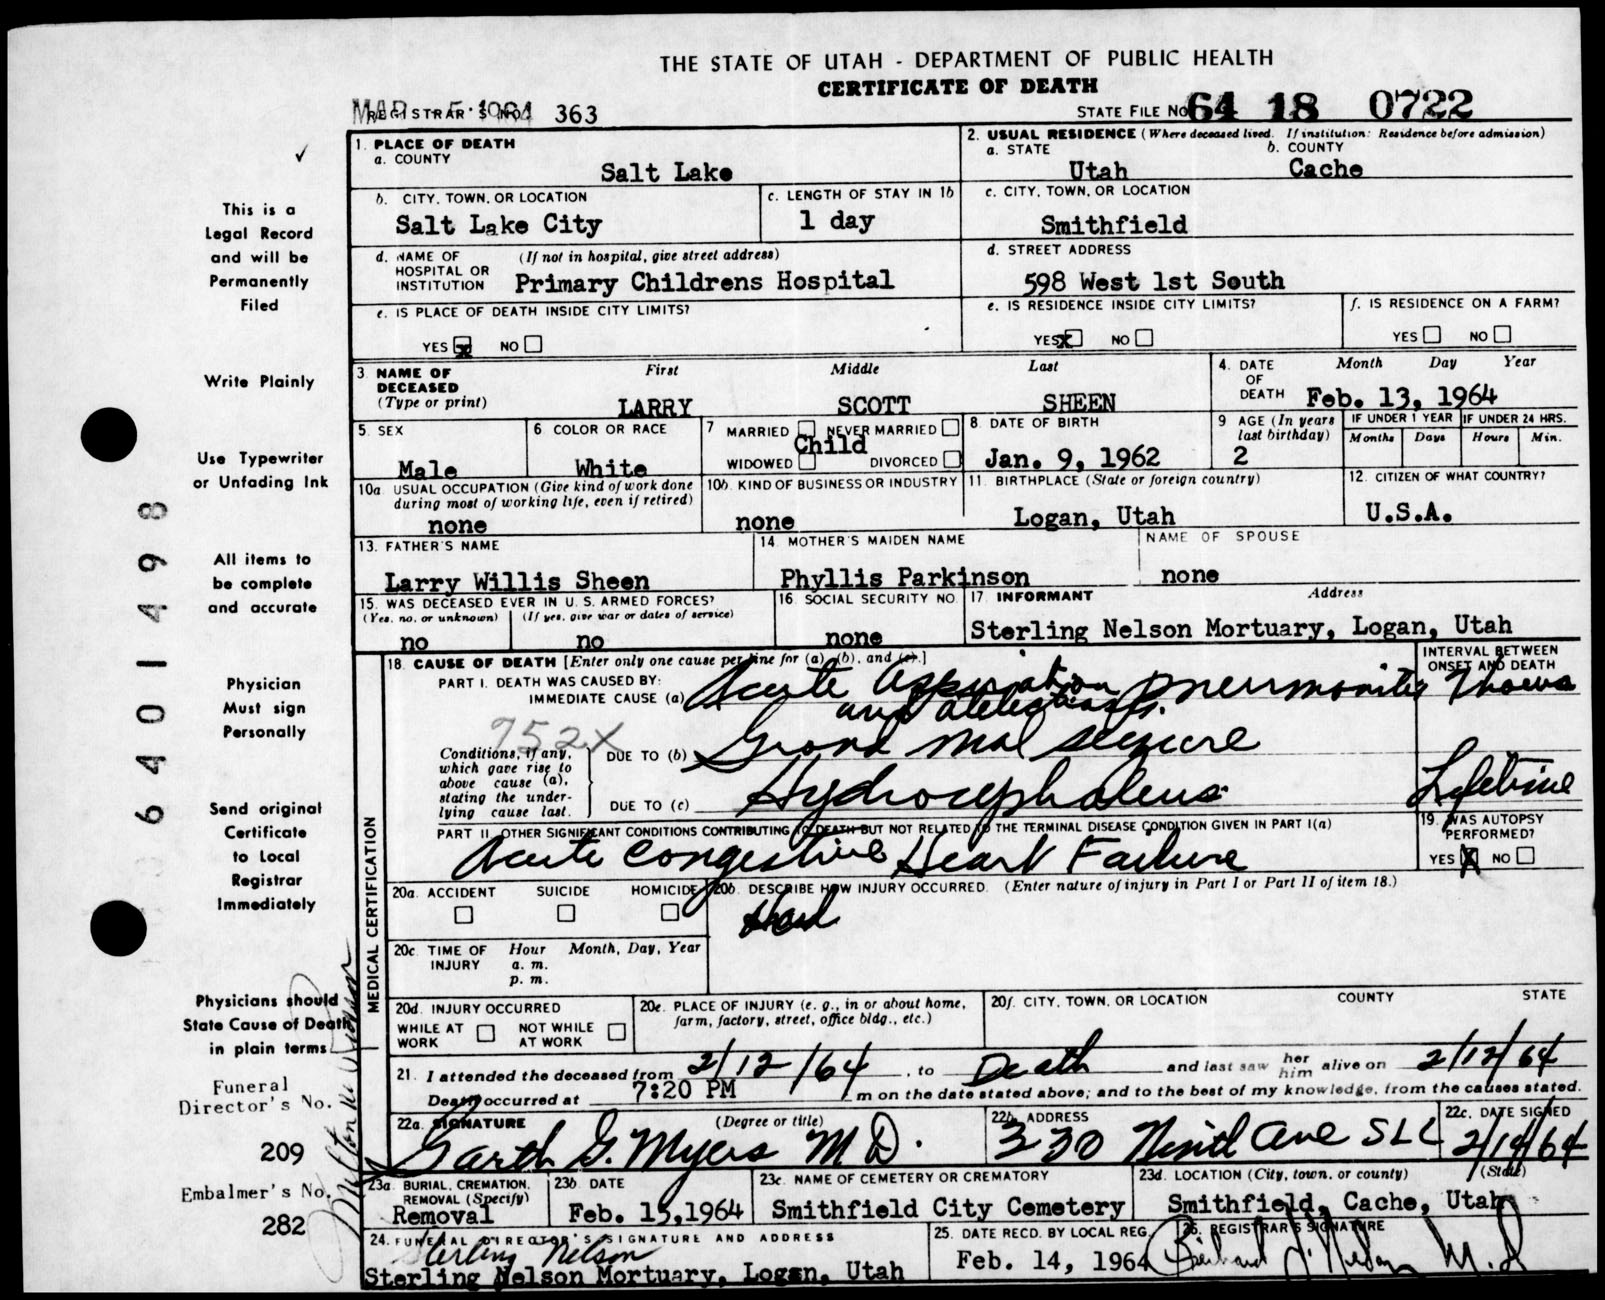 THE STATE OF UTAH - DEPARTMENT OF PUBLIC HEALTH
CERTIFICATE OF DEATH
REGISTRAR'S NO. 363
STATE FILE No. 64 18 0722
1. PLACE OF DEATH
a. COUNTY
Salt Lake
2. USUAL RESIDENCE (Where deceased lived. If institution: Residence before admission)
a. STATE b. COUNTY
Utah Cache
b. CITY, TOWN, OR LOCATION
Salt Lake City
c. LENGTH OF STAY IN 1b
1 day
c. CITY, TOWN, OR LOCATION
Smithfield
d. NAME OF HOSPITAL OR INSTITUTION (If not in hospital, give street address)
Primary Childrens Hospital
d. STREET ADDRESS
598 West 1st South
e. IS PLACE OF DEATH INSIDE CITY LIMITS?
YES X NO
e. IS RESIDENCE INSIDE CITY LIMITS?
YES X NO
f. IS RESIDENCE ON A FARM?
YES NO
3. NAME OF DECEASED (Type or print)
First Middle Last
LARRY SCOTT SHEEN
4. DATE OF DEATH Month Day Year
Feb. 13, 1964
5. SEX
Male
6 COLOR OR RACE
White
7 MARRIED NEVER MARRIED
Child
WIDOWED DIVORCED
8. DATE OF BIRTH
Jan. 9, 1962
9 AGE (In years last birthday)
2
IF UNDER 1 YEAR IF UNDER 24 HRS.
Months Days Hours Min.
10a. USUAL OCCUPATION (Give kind of work done during most of working life, even if retired)
none
10b. KIND OF BUSINESS OR INDUSTRY
none
11. BIRTHPLACE (State or foreign country)
Logan, Utah
12. CITIZEN OF WHAT COUNTRY?
U.S.A.
13. FATHER'S NAME
Larry Willis Sheen
14. MOTHER'S MAIDEN NAME
Phyllis Parkinson
NAME OF SPOUSE
none
15. WAS DECEASED EVER IN U. S. ARMED FORCES?
(Yes, no, or unknown) (If yes, give war or dates of service)
no no
16. SOCIAL SECURITY NO.
none
17. INFORMANT Address
Sterling Nelson Mortuary, Logan, Utah
MEDICAL CERTIFICATION
18. CAUSE OF DEATH [Enter only one cause per line for (a), (b), and (c).]
INTERVAL BETWEEN ONSET AND DEATH
PART I. DEATH WAS CAUSED BY:
IMMEDIATE CAUSE (a) Acute Aspiration pneumonitis
and atelectasis.
752X
Conditions, if any, which gave rise to above cause (a), stating the under-lying cause last.
DUE TO (b) Grand mal seizure
DUE TO (c) Hydrocephalus
Lifetime
PART II. OTHER SIGNIFICANT CONDITIONS CONTRIBUTING TO DEATH BUT NOT RELATED TO THE TERMINAL DISEASE CONDITION GIVEN IN PART I(a)
Acute Congestive Heart Failure
19. WAS AUTOPSY PERFORMED?
YES X NO
20a. ACCIDENT SUICIDE HOMICIDE
20b. DESCRIBE HOW INJURY OCCURRED. (Enter nature of injury in Part I or Part II of item 18.)
20c. TIME OF INJURY Hour Month, Day, Year
a. m.
p. m.
20d. INJURY OCCURRED
WHILE AT WORK NOT WHILE AT WORK
20e. PLACE OF INJURY (e. g., in or about home, farm, factory, street, office bldg., etc.)
20f. CITY, TOWN, OR LOCATION COUNTY STATE
21. I attended the deceased from 2/12/64, to Death and last saw her him alive on 2/12/64
Death occurred at 7:20 PM m on the date stated above; and to the best of my knowledge, from the causes stated.
22a. SIGNATURE (Degree or title)
Garth G. Myers M D.
22b. ADDRESS
330 Ninth Ave SLC
22c. DATE SIGNED
2/14/64
23a. BURIAL, CREMATION, REMOVAL (Specify)
Removal
23b. DATE
Feb. 15,1964
23c. NAME OF CEMETERY OR CREMATORY
Smithfield City Cemetery
23d. LOCATION (City, town, or county) (State)
Smithfield, Cache, Utah
24. FUNERAL DIRECTOR'S SIGNATURE AND ADDRESS
Sterling Nelson
Sterling Nelson Mortuary, Logan, Utah
25. DATE RECD. BY LOCAL REG.
Feb. 14, 1964
26. REGISTRAR'S SIGNATURE
M.D.
This is a
Legal Record
and will be
Permanently
Filed
Write Plainly
Use Typewriter
or Unfading Ink
All items to
be complete
and accurate
Physician
Must sign
Personally
Send original
Certificate
to Local
Registrar
Immediately
Physicians should
State Cause of Death
in plain terms
Funeral
Director's No.
209
Embalmer's No.
282
6401498